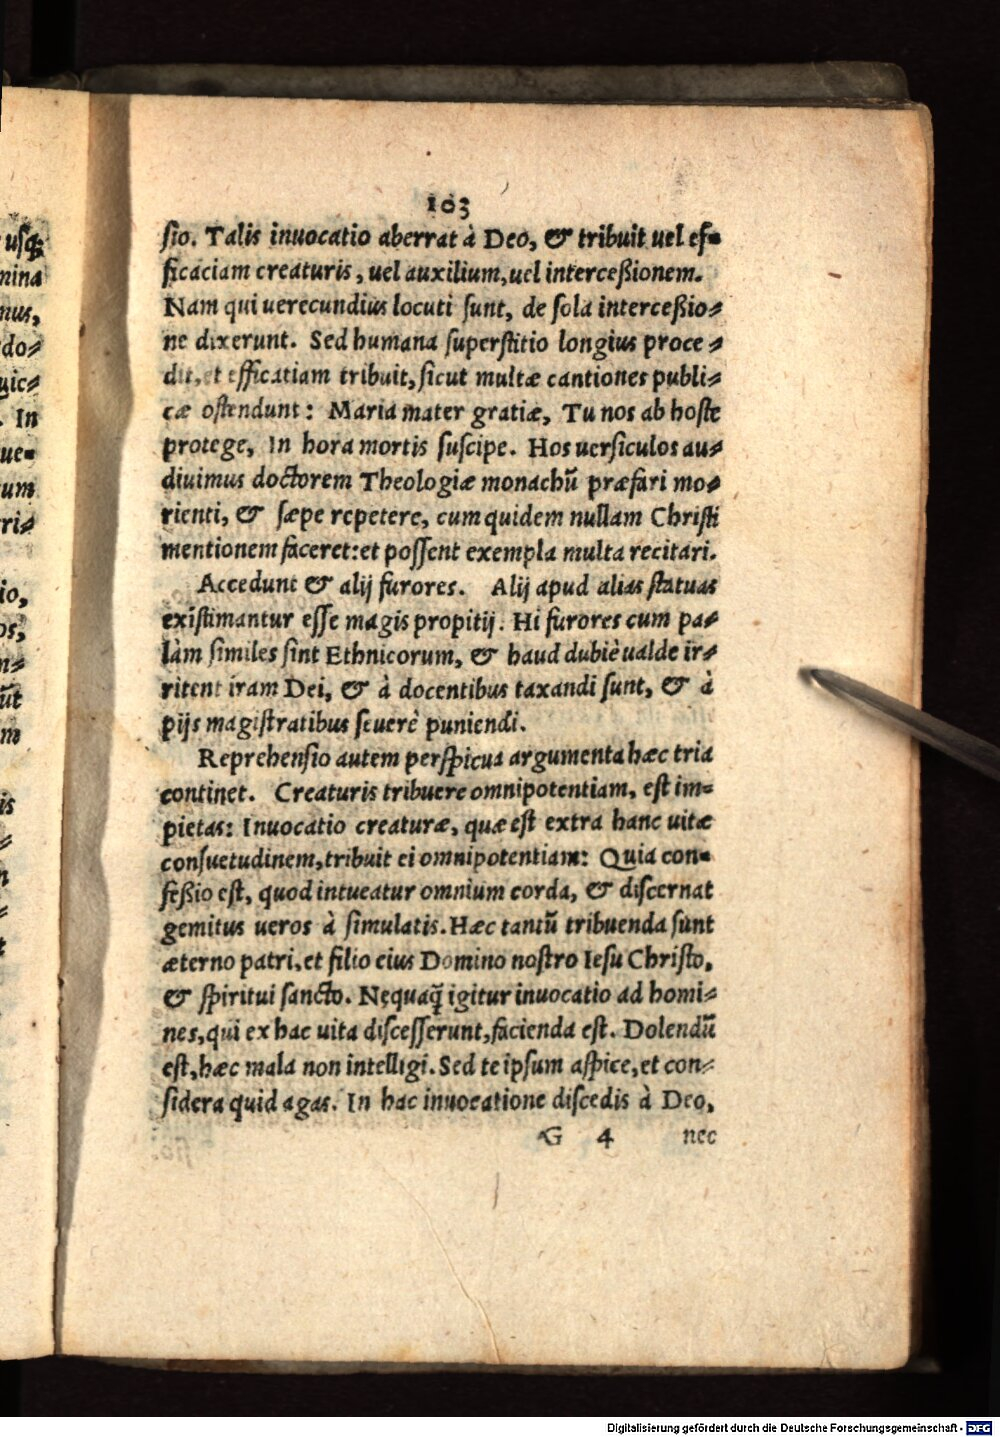 usq;
mina
mus,
do⸗
uic⸗
. In
ue⸗
um
ri⸗
io,
os,
n⸗
ũt
m
is
103
ſio. Talis inuocatio aberrat à Deo, & tribuit uel ef⸗
ficaciam creaturis, uel auxilium, uel interceßionem.
Nam qui uerecundius locuti ſunt, de ſola interceßio⸗
ne dixerunt. Sed humana ſuperſtitio longius proce⸗
dit, et efficatiam tribuit, ſicut multæ cantiones publi⸗
cæ oſtendunt: Maria mater gratiæ, Tu nos ab hoſte
protege, In hora mortis ſuſcipe. Hos uerſiculos au⸗
diuimus doctorem Theologiæ monachũ præfari mo⸗
rienti, & ſæpe repetere, cum quidem nullam Chriſti
mentionem faceret: et poſſent exempla multa recitari.
Accedunt & alij furores. Alij apud alias ſtatuas
exiſtimantur eſſe magis propitij. Hi furores cum pa⸗
làm ſimiles ſint Ethnicorum, & haud dubiè ualde ir⸗
ritent iram Dei, & à docentibus taxandi ſunt, & à
pijs magiſtratibus ſeuerè puniendi.
Reprehenſio autem perſpicua argumenta hæc tria
continet. Creaturis tribuere omnipotentiam, eſt im⸗
pietas: Inuocatio creaturæ, quæ eſt extra hanc uitæ
conſuetudinem, tribuit ei omnipotentiam: Quia con⸗
feßio eſt, quod intueatur omnium corda, & diſcernat
gemitus ueros à ſimulatis. Hæc tantũ tribuenda ſunt
æterno patri, et filio eius Domino noſtro Ieſu Chriſto,
& ſpiritui ſancto. Nequaq̃ igitur inuocatio ad homi⸗
nes, qui ex hac uita diſceſſerunt, facienda eſt. Dolendũ
eſt, hæc mala non intelligi. Sed te ipſum aſpice, et con⸗
ſidera quid agas. In hac inuocatione diſcedis à Deo,
G 4 nec
Digitalisierung gefördert durch die Deutsche Forschungsgemeinschaft - DFG